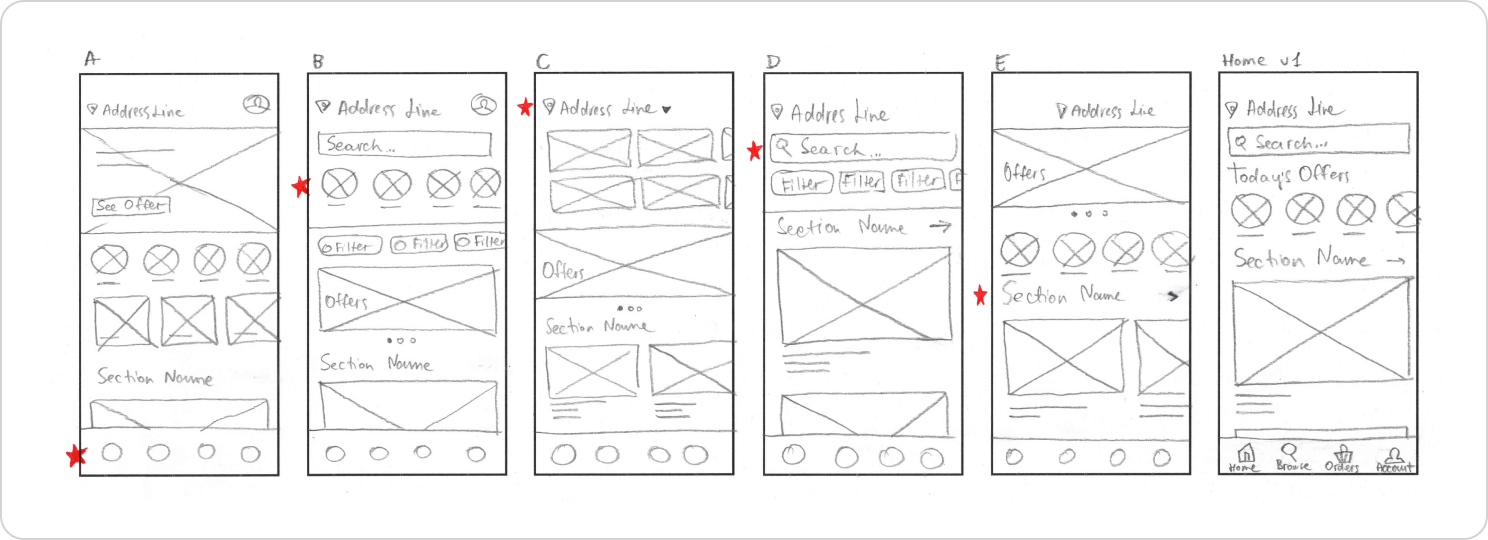 A
Address Line
See Offer
Section Name
B
Address Line
Search...
Filter
Filter
Filter
Offers
Section Name
C
Address Line
Offers
Section Name
D
Addres Line
Search...
Filter
Filter
Filter
F
Section Name
E
Address Lie
Offers
Section Name
Home v1
Address Line
Search...
Today's Offers
Section Name
Home
Browse
Orders
Account